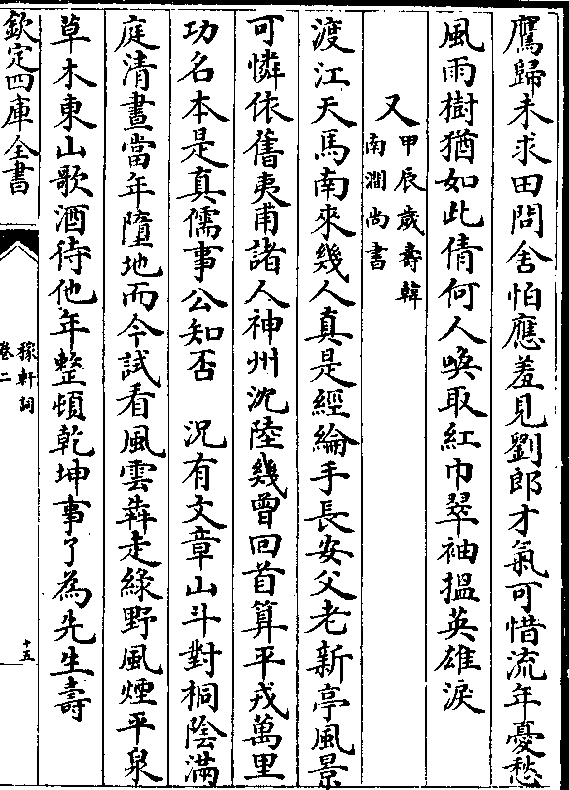 鷹歸未求田問舍怕應羞見劉郎才氣可惜流年憂愁
風雨樹猶如此倩何人喚取紅巾翠袖搵英雄淚
又甲辰歲壽韓
南澗尚書
渡江天馬南來幾人真是經綸手長安父老新亭風景
可憐依舊夷甫諸人神州沈陸幾曾回首算平戎萬里
功名本是真儒事公知否 況有文章山斗對桐陰滿
庭清晝當年墮地而今試看風雲犇走綠野風煙平泉
草木東山歌酒待他年整頓乾坤事了為先生壽
欽定四庫全書
稼軒詞
卷二
十五